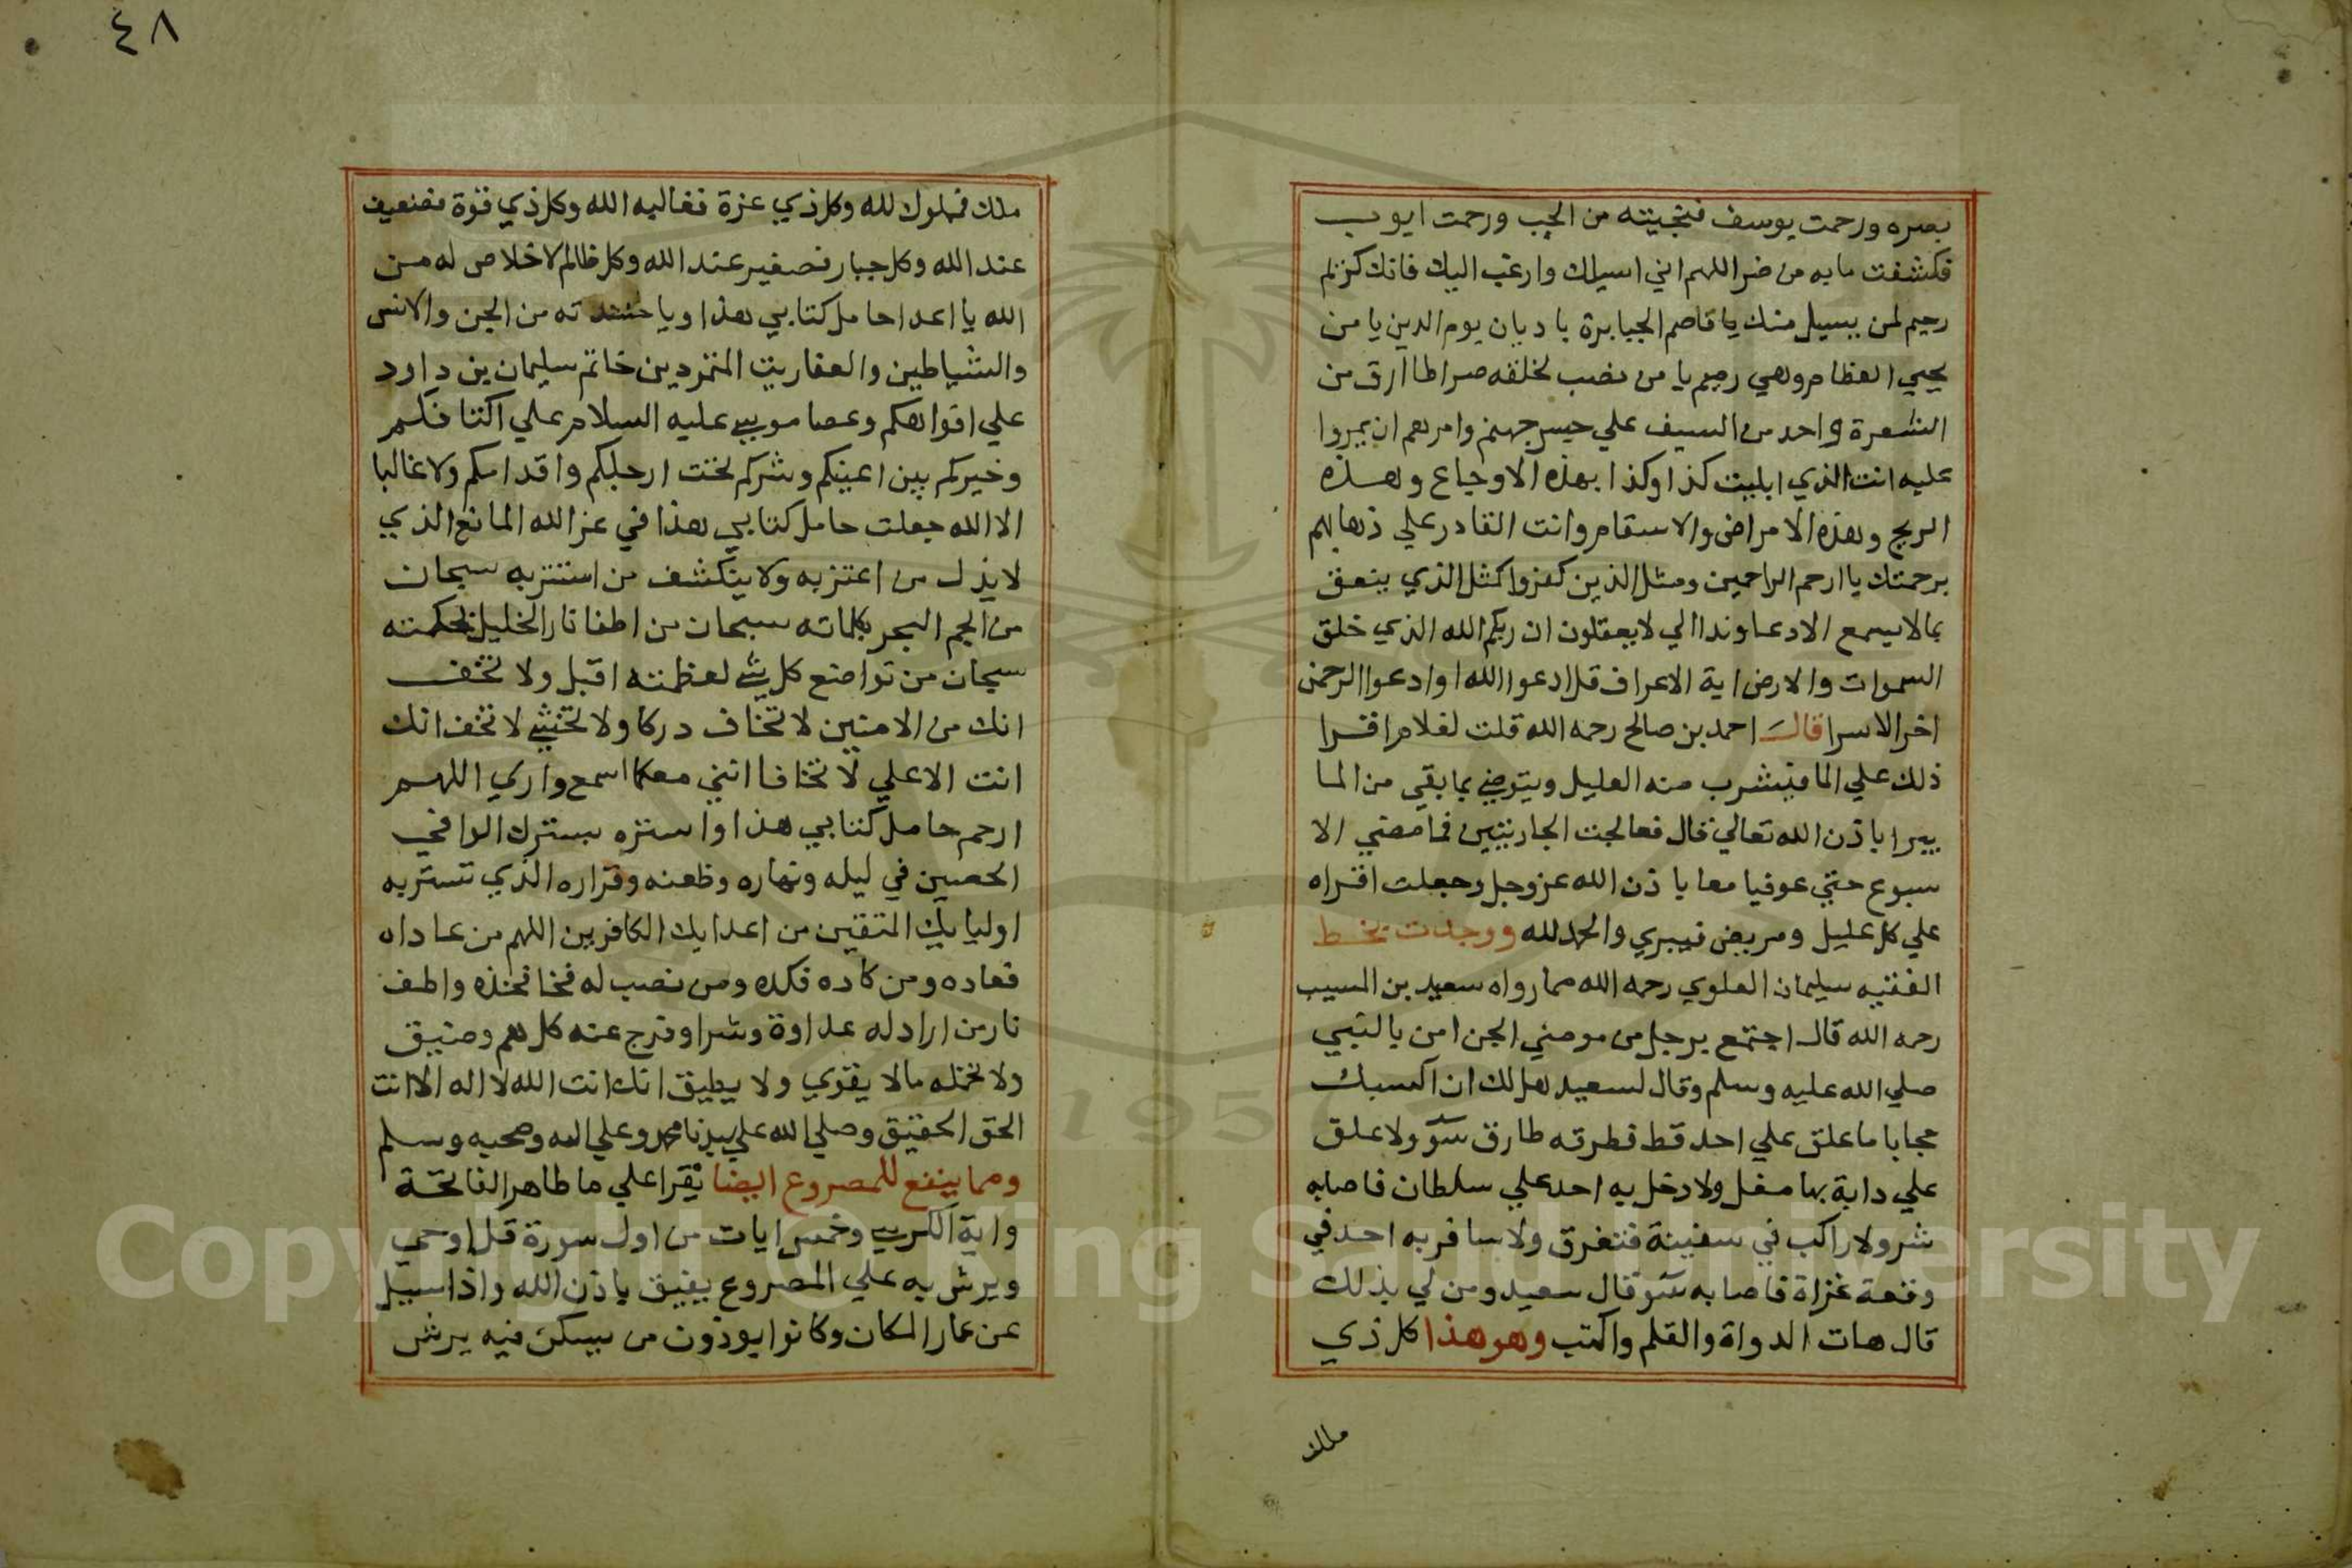 بصره ورحمت يوسف فنجيته من الجب ورحمت ايوب
فكشفت ما به من ضر اللهم اني اسيلك وارغب اليك فانك كريم
رحيم لمن يسيل منك يا قاصم الجبابرة يا ديان يوم الدين يا من
يحيي العظام وهي رميم يا من نصب لخلقه صراطا ارق من
الشعرة واحد من السيف علي جسر جهنم وامرهم ان يمروا
عليه انت الذي ابليت كذا وكذا بهذه الاوجاع وهذه
الريح وهذه الامراض والاسقام وانت القادر علي ذهابهم
برحمتك يا ارحم الراحمين ومثل الذين كفروا كمثل الذي ينعق
بما لا يسمع الا دعا وندا الي لا يعقلون ان ربكم الله الذي خلق
السموات والارض اية الاعراف قل ادعوا الله او ادعوا الرحمن
اخر الاسرا قال احمد بن صالح رحمه الله قلت لغلام اقرا
ذلك علي الما فيشرب منه العليل ويتوضي بما بقي من الما
يبرا باذن الله تعالي قال فعالجت الجاريتين فما مضي الا
سبوع حتي عوفيا معا باذن الله عز وجل وجعلت اقراه
علي كل عليل ومريض فيبري والحمد لله ووجدت بخط
الفقيه سليمان العلوي رحمه الله مما رواه سعيد بن المسيب
رحمه الله قال اجتمع برجل من مومني الجن امن بالنبي
صلي الله عليه وسلم وقال لسعيد هل لك ان اكسبك
حجابا ما علق علي احد قط فطرقه طارق سو ولا علق
علي دابة بها مغل ولا دخل به احد علي سلطان فاصابه
شر ولا راكب في سفينة فتغرق ولا سافر به احد في
وقعة غزاة فاصابه سو قال سعيد ومن لي بذلك
قال هات الدواة والقلم واكتب وهو هذا كل ذي
ملك
٤٨
ملك فمملوك لله وكل ذي عزة فغاليه الله وكل ذي قوة فضعيف
عند الله وكل جبار فصغير عند الله وكل ظالم لا خلاص له من
الله يا اعدا حامل كتابي هذا ويا من الجن والانس
والشياطين والعفاريت المتمردين خاتم سليمان بن داود
علي افواهكم وعصا موسي عليه السلام علي اكتافكم
وخيركم بين اعينكم وشركم تحت ارجلكم واقدامكم ولا غالبا
الا الله جعلت حامل كتابي هذا في عز الله المانع الذي
لا يذل من اعتز به ولا ينكشف من استتر به سبحان
من الجم البحر بكلماته سبحان من اطفا نار الخليل بحكمته
سبحان من تواضع كل شي لعظمته اقبل ولا تخف
انك من الامنين لا تخاف دركا ولا تخشي لا تخف انك
انت الاعلي لا تخافا انني معكما اسمع واري اللهم
ارحم حامل كتابي هذا واستره بسترك الوافي
الحصين في ليله ونهاره وظعنه وقراره الذي تستر به
اوليايك المتقين من اعدايك الكافرين اللهم من عاداه
فعاده ومن كاده فكده ومن نصب له فخا فخذه واطف
نار من اراد له عداوة وشرا وفرج عنه كل هم وضيق
ولا تحمله ما لا يقوي ولا يطيق انك انت الله لا اله الا انت
الحق الحقيق وصلي الله علي سيدنا محمد وعلي اله وصحبه وسلم
ومما ينفع للمصروع ايضا يقرا علي ما طاهر الفاتحة
واية الكرسي وخمس ايات من اول سورة قل اوحي
ويرش به علي المصروع يفيق باذن الله واذا سيل
عن عمار المكان وكانوا يوذون من يسكن فيه يرش